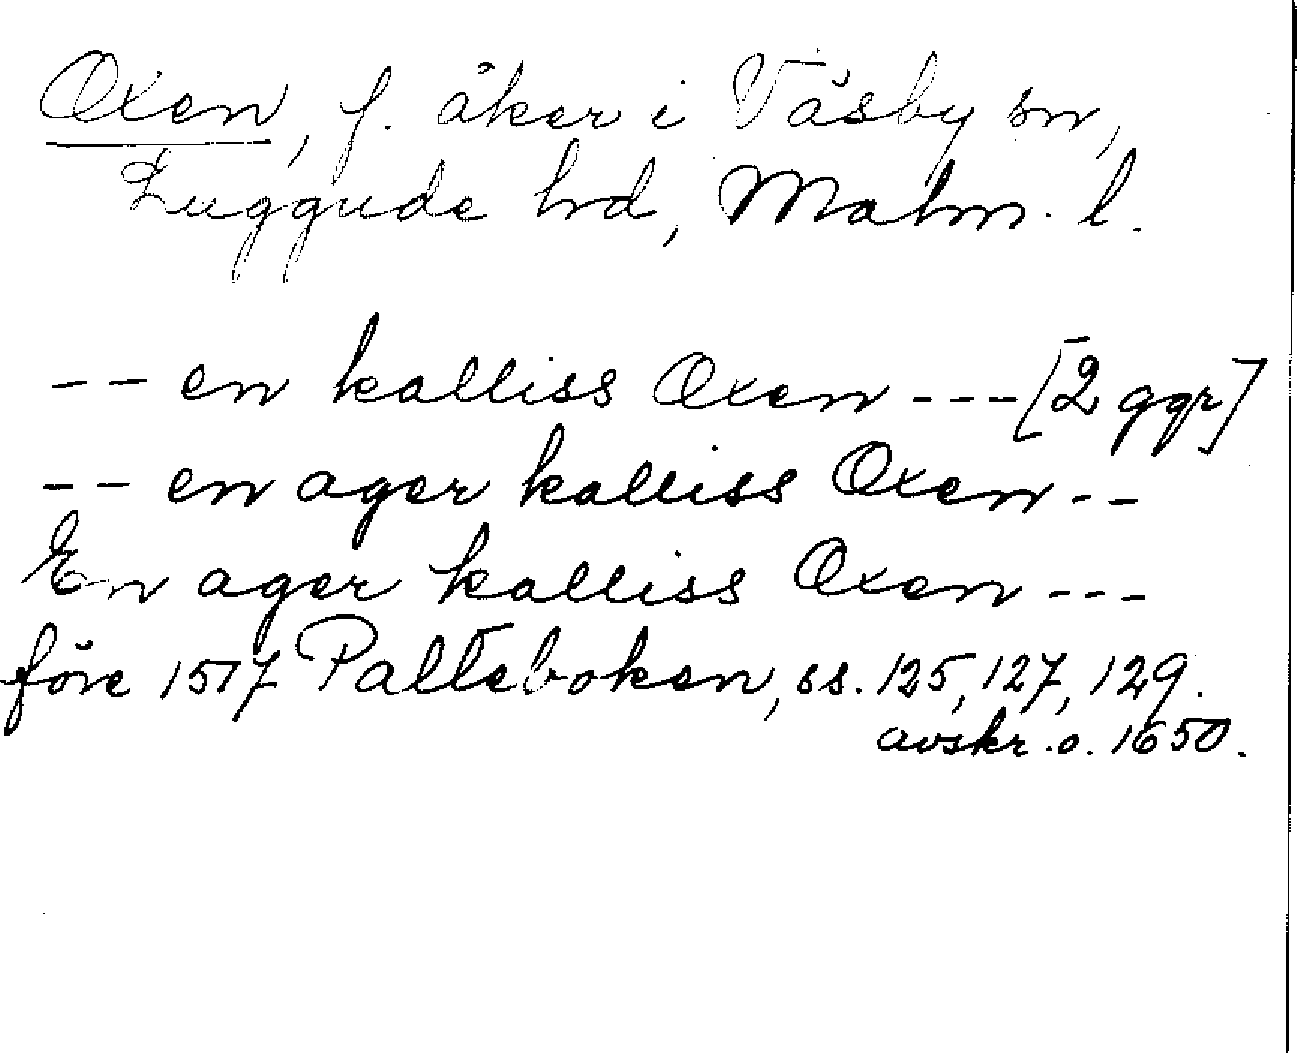 Oxen, f. åker i Väsby sn,
Luggude hrd, Malm. l.
-- en kalliss Oxen --- [2 ggr]
-- en ager kalliss Oxen --
En ager kalliss Oxen ---
före 1517 Palteboken, ss. 125, 127, 129.
avskr. o. 1650.